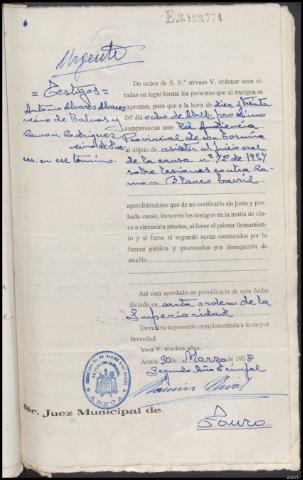 E.3.133.774
Urgente
= Testigos =
Antonio Alvardo
vecino de y
Ramon Rodriguez
en este termino.
De orden de S. Sª sírvase V. ordenar sean ci-
tadas en legal forma las personas que al margen se
expresan, para que a la hora de diez y treinta
del día ocho de Abril proximo
comparezcan ante la Audiencia
Provincial de La Coruña
al objeto de asistir al juicio oral
de la causa nº 12 de 1937
sobre lesiones contra Ra-
mon Blanco Barril
apercibiéndoles que de no verificarlo sin justa y pro-
bada causa, incurren los testigos en la multa de cin-
co a cincuenta pesetas, si fuese el primer llamamien-
to y si fuese el segundo serán conducidos por la
fuerza pública y procesados por denegación de
auxilio
Así está acordado en providencia de esta fecha
dictada en carta orden de la
Superioridad
Devuelva la presente cumplimentada a la mayor
brevedad.
Viva V. muchos años.
Arzúa 30 de Marzo de 1938
Segundo Año Triunfal
ARZUA
Sr. Juez Municipal de
Touro